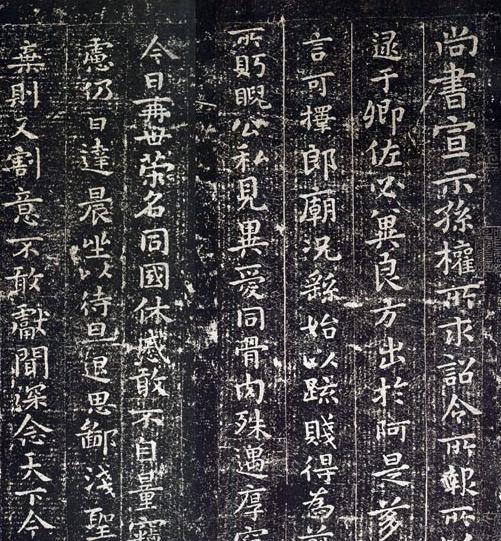 尚書宣示孫權所求詔令所報所
逮于卿佐必兾良方出於阿是芻
言可擇郎廟況繇始以疏賤得為前
所眄睨公私見異愛同骨肉殊遇厚寵
今日再世榮名同國休慼敢不自量竊
慮仍日達晨坐以待旦退思鄙淺聖
棄則又割意不敢獻聞深念天下今